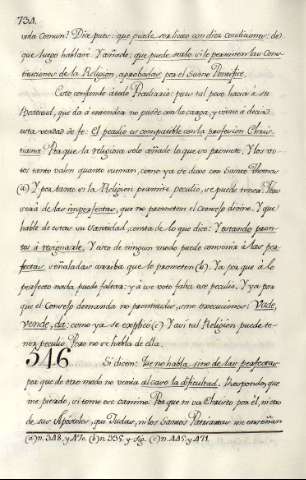 734.
vida Comun? Dixe pues: que puede ser licito con dos condiciones: de
que luego hablare. Y añade: que puede serlo si le permiten las Cons-
tituciones de la Religion, aprobadas por el Sumo Pontifice.
Esto confunde á este Peculiario: pero tal
que dá á entender no puede con la carga, y viene á decir
esta verdad de fe. El peculio es compatible con la profesion Chris-
tiana. Porque la religiosa solo añade lo que se promete. Y los vo-
tos tanto valen quanto suenan, como ya se dixo con Santo Thomas
(a) Y por tanto si la Religion permite peculio, se puede tener?
verá de las imperfectas, que no prometen el Consejo divino. Y que
hable de estas su Santidad, consta de lo que dice: Y estando pron-
tos á resignarle. Y esto de ningun modo puede convenir á las per-
fectas, señaladas arriba que le prometen (b). Ya por que á lo
perfecto nada puede faltar: y á ese voto falta ese peculio. Y ya por
que el Consejo demanda no prontitudes, sino execuciones: Vade,
vende, da: como ya se explicó (c) Y asi tal Religion puede te-
ner peculio. Pero no se habla de ella.
546 Si dicen: Que no habla sino de las perfectas
por que de otro modo no venia al caso la dificultad. Respondo, que
me perado, si tome ese camino. Por que ni en Christo por él, ni otro
de sus Apostoles, que Judas, ni los Santos Patriarcas nos enseñan
(a) n. 348. y 470. (b) n. 335. y sig. (c) n. 445. y 471.